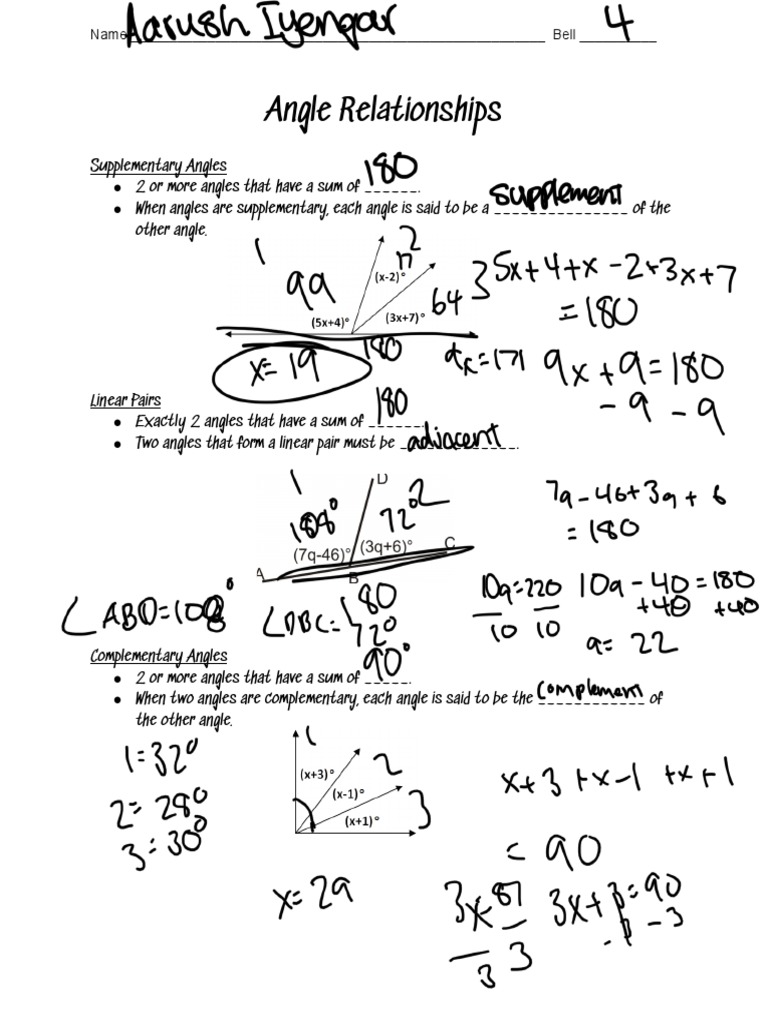 Name Aarush Iyengar Bell 4
Angle Relationships
Supplementary Angles
● 2 or more angles that have a sum of 180.
● When angles are supplementary, each angle is said to be a supplement of the
other angle.
1 2
99 (x-2)° 17
(5x+4)° (3x+7)° 64 3
180
x=19
5x+4+x-2+3x+7
=180
9x=171 9x+9=180
-9 -9
Linear Pairs
● Exactly 2 angles that have a sum of 180
● Two angles that form a linear pair must be adjacent.
1 D 2
108° 72°
(7q-46)° (3q+6)° C
A B
7q-46+3q+6
=180
10q=220 10q-40=180
10 10 +40 +40
q=22
∠ABD=108° ∠DBC=
180
72°
Complementary Angles
● 2 or more angles that have a sum of 90°.
● When two angles are complementary, each angle is said to be the complement of
the other angle.
1=32°
2=28°
3=30°
1
(x+3)° 2
(x-1)°
(x+1)° 3
x=29
x+3+x-1+x+1
=90
3x=87 3x+3=90
3 3 -3